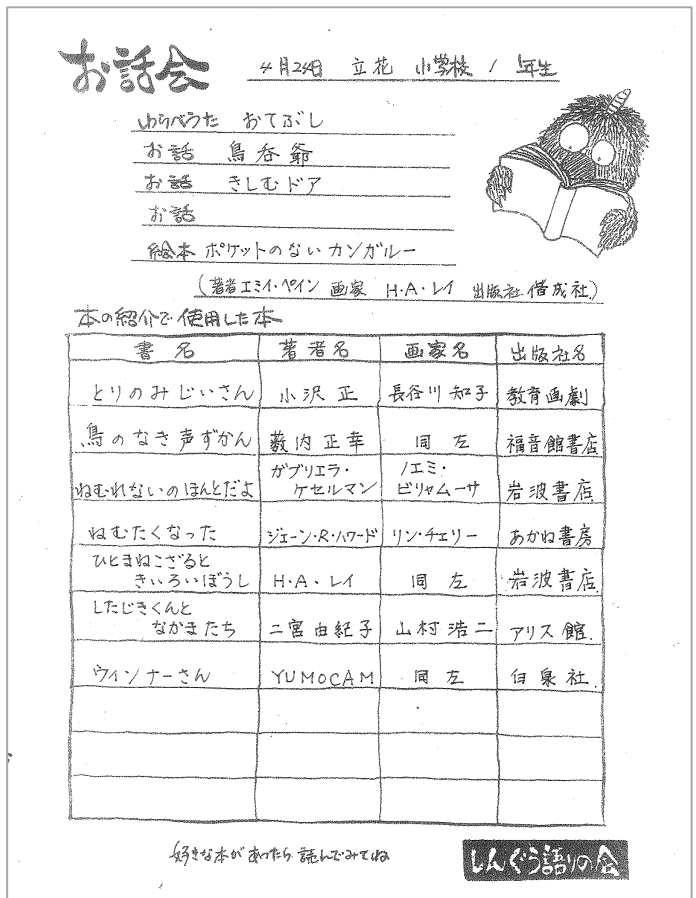 お話会
4月24日 立花 小学校 1 年生
わらべうた おてぶし
お話 鳥呑爺
お話 きしむドア
お話
絵本 ポケットのないカンガルー
(著者 エミイ・ペイン 画家 H・A・レイ 出版社 偕成社)
本の紹介で使用した本
書名 著者名 画家名 出版社名
とりのみじいさん 小沢正 長谷川知子 教育画劇
鳥のなき声ずかん 薮内正幸 同左 福音館書店
ねむれないのほんとだよ ガブリエラ・ケセルマン ノエミ・ビリャムーサ 岩波書店
ねむたくなった ジェーン・R・ハワード リン・チェリー あかね書房
ひとまねこざると きいろいぼうし H・A・レイ 同左 岩波書店
したじきくんと なかまたち 二宮由紀子 山村浩二 アリス館
ウィンナーさん YUMOCAM 同左 白泉社
好きな本があったら 読んでみてね
しんぐう語りの会